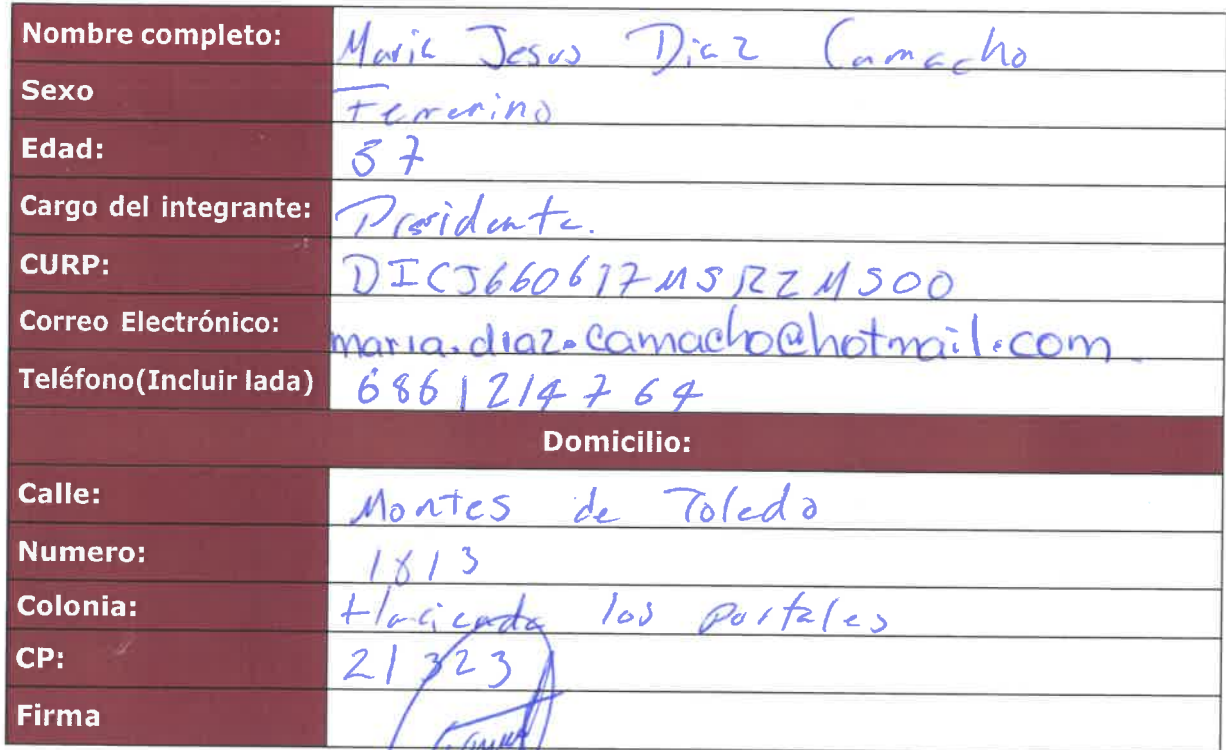 Nombre completo: Maria Jesus Diaz Camacho
Sexo Femenino
Edad: 57
Cargo del integrante: Presidenta.
CURP: DICJ660617MSRZMS00
Correo Electrónico: maria.diaz.camacho@hotmail.com
Teléfono(Incluir lada) 6861214764
Domicilio:
Calle: Montes de Toledo
Numero: 1813
Colonia: Hacienda los portales
CP: 21323
Firma